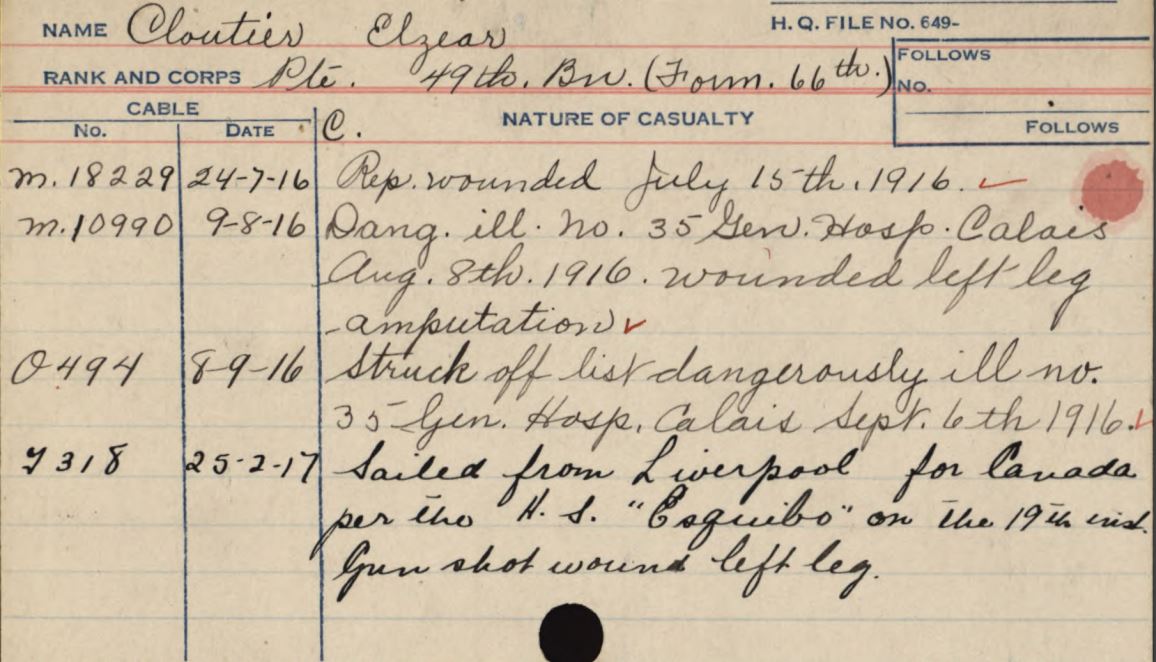 NAME Cloutier Elzear
H. Q. FILE No. 649-
RANK AND CORPS Pte. 49th. Bn. (Form. 66th.)
FOLLOWS
No.
FOLLOWS
CABLE
No. DATE
C. NATURE OF CASUALTY
M. 18229 24-7-16 Rep. wounded July 15th. 1916.
M. 10990 9-8-16 Dang. ill. No. 35 Gen. Hosp. Calais
Aug. 8th. 1916. wounded left leg
-amputation
O 494 8-9-16 Struck off list dangerously ill no.
35 Gen. Hosp. Calais Sept. 6th 1916.
318 25-2-17 Sailed from Liverpool for Canada
per the H. S. "Esquibo" on the 19th inst.
Gun shot wound left leg.